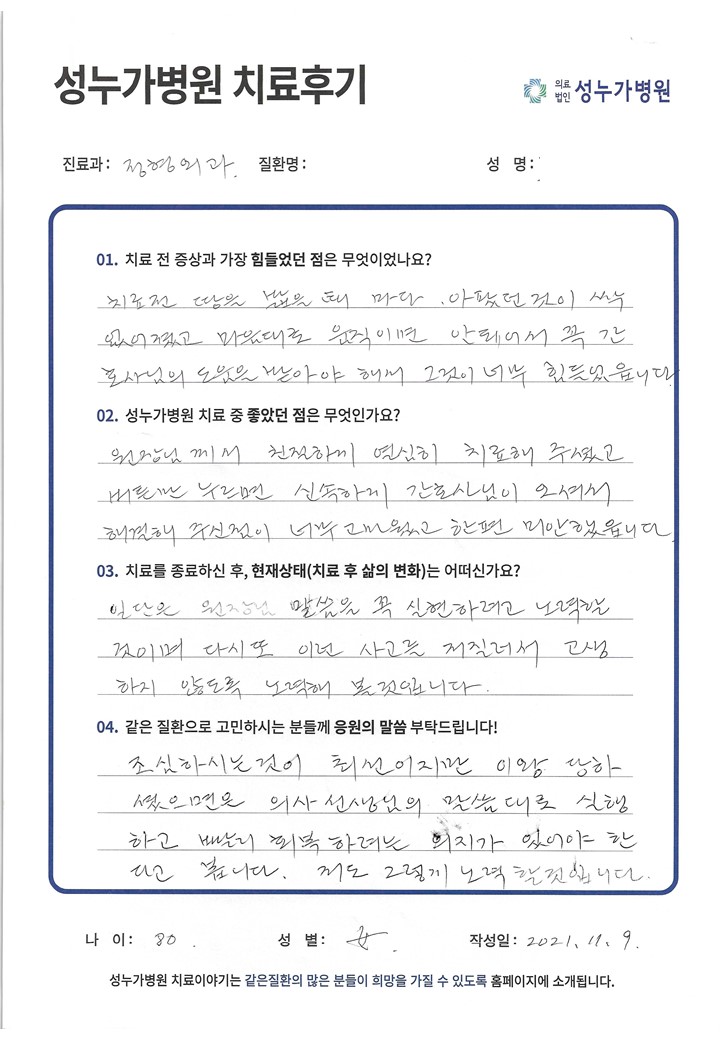 성누가병원 치료후기
의료법인 성누가병원
진료과: 정형외과. 질환명: 성 명:
01. 치료 전 증상과 가장 힘들었던 점은 무엇이었나요?
치료전 땅을 밟을 때 마다 아팠던것이
없어졌고 마음대로 움직이면 안돼어서 꼭 간
호사님의 도움을 받아야 해서 그것이 너무 힘들었읍니다
02. 성누가병원 치료 중 좋았던 점은 무엇인가요?
원장님 께서 친절하게 열심히 치료해 주셨고
버튼만 누르면 신속하게 간호사님이 오셔서
해결해 주신점이 너무 고마웠고 한편 미안했읍니다.
03. 치료를 종료하신 후, 현재상태(치료 후 삶의 변화)는 어떠신가요?
일단은 원장님 말씀을 꼭 실현하려고 노력할
것이며 다시또 이런 사고를 저질러서 고생
하지 않도록 노력해 볼것입니다.
04. 같은 질환으로 고민하시는 분들께 응원의 말씀 부탁드립니다!
조심하시는것이 최선이지만 이왕 당하
셨으면은 의사선생님의 말씀대로 실행
하고 빨리 회복하려는 의지가 있어야 한
다고 봅니다. 저도 그렇게 노력 할것입니다.
나 이: 80. 성 별: 女. 작성일: 2021. 11. 9.
성누가병원 치료이야기는 같은질환의 많은 분들이 희망을 가질 수 있도록 홈페이지에 소개됩니다.